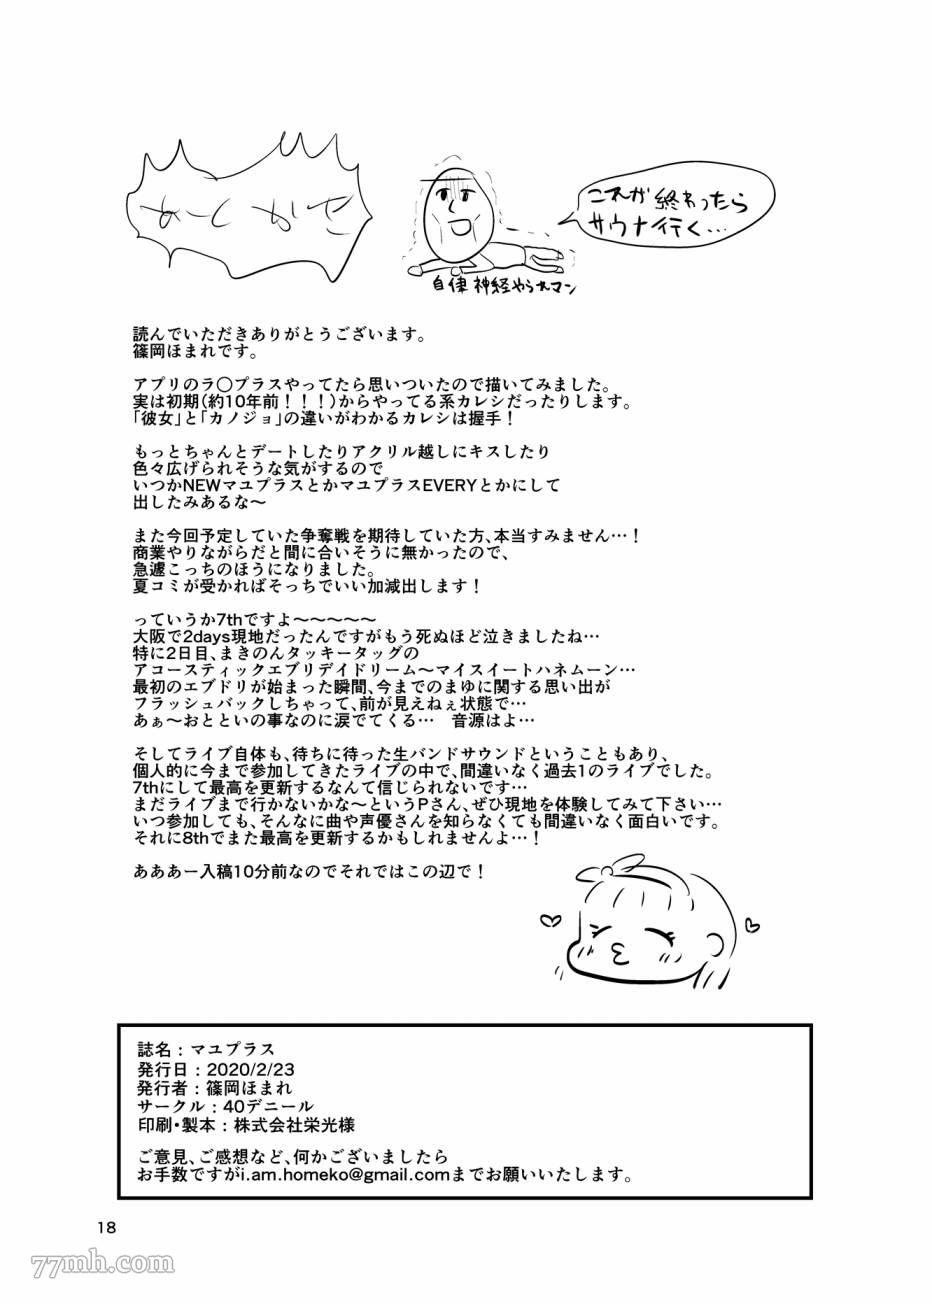 あとがき
これが終わったら
サウナ行く…
自律神経やられマン
読んでいただきありがとうございます。
篠岡ほまれです。
アプリのラ〇プラスやってたら思いついたので描いてみました。
実は初期(約10年前！！！)からやってる系カレシだったりします。
｢彼女｣と｢カノジョ｣の違いがわかるカレシは握手！
もっとちゃんとデートしたりアクリル越しにキスしたり
色々広げられそうな気がするので
いつかNEWマユプラスとかマユプラスEVERYとかにして
出したみあるな〜
また今回予定していた争奪戦を期待していた方､本当すみません…！
商業やりながらだと間に合いそうに無かったので､
急遽こっちのほうになりました。
夏コミが受かればそっちでいい加減出します！
っていうか7thですよ〜〜〜〜〜
大阪で2days現地だったんですがもう死ぬほど泣きましたね…
特に2日目､まきのんタッキータッグの
アコースティックエブリデイドリーム〜マイスイートハネムーン…
最初のエブドリが始まった瞬間､今までのまゆに関する思い出が
フラッシュバックしちゃって､前が見えねぇ状態で…
あぁ〜おとといの事なのに涙でてくる…　音源はよ…
そしてライブ自体も､待ちに待った生バンドサウンドということもあり､
個人的に今まで参加してきたライブの中で､間違いなく過去1のライブでした。
7thにして最高を更新するなんて信じられないです…
まだライブまで行かないかな〜というPさん､ぜひ現地を体験してみて下さい…
いつ参加しても､そんなに曲や声優さんを知らなくても間違いなく面白いです。
それに8thでまた最高を更新するかもしれませんよ…！
あああー入稿10分前なのでそれではこの辺で！
誌名：マユプラス
発行日：2020/2/23
発行者：篠岡ほまれ
サークル：40デニール
印刷･製本：株式会社栄光様
ご意見､ご感想など､何かございましたら
お手数ですがi.am.homeko@gmail.comまでお願いいたします。
18
77mh.com